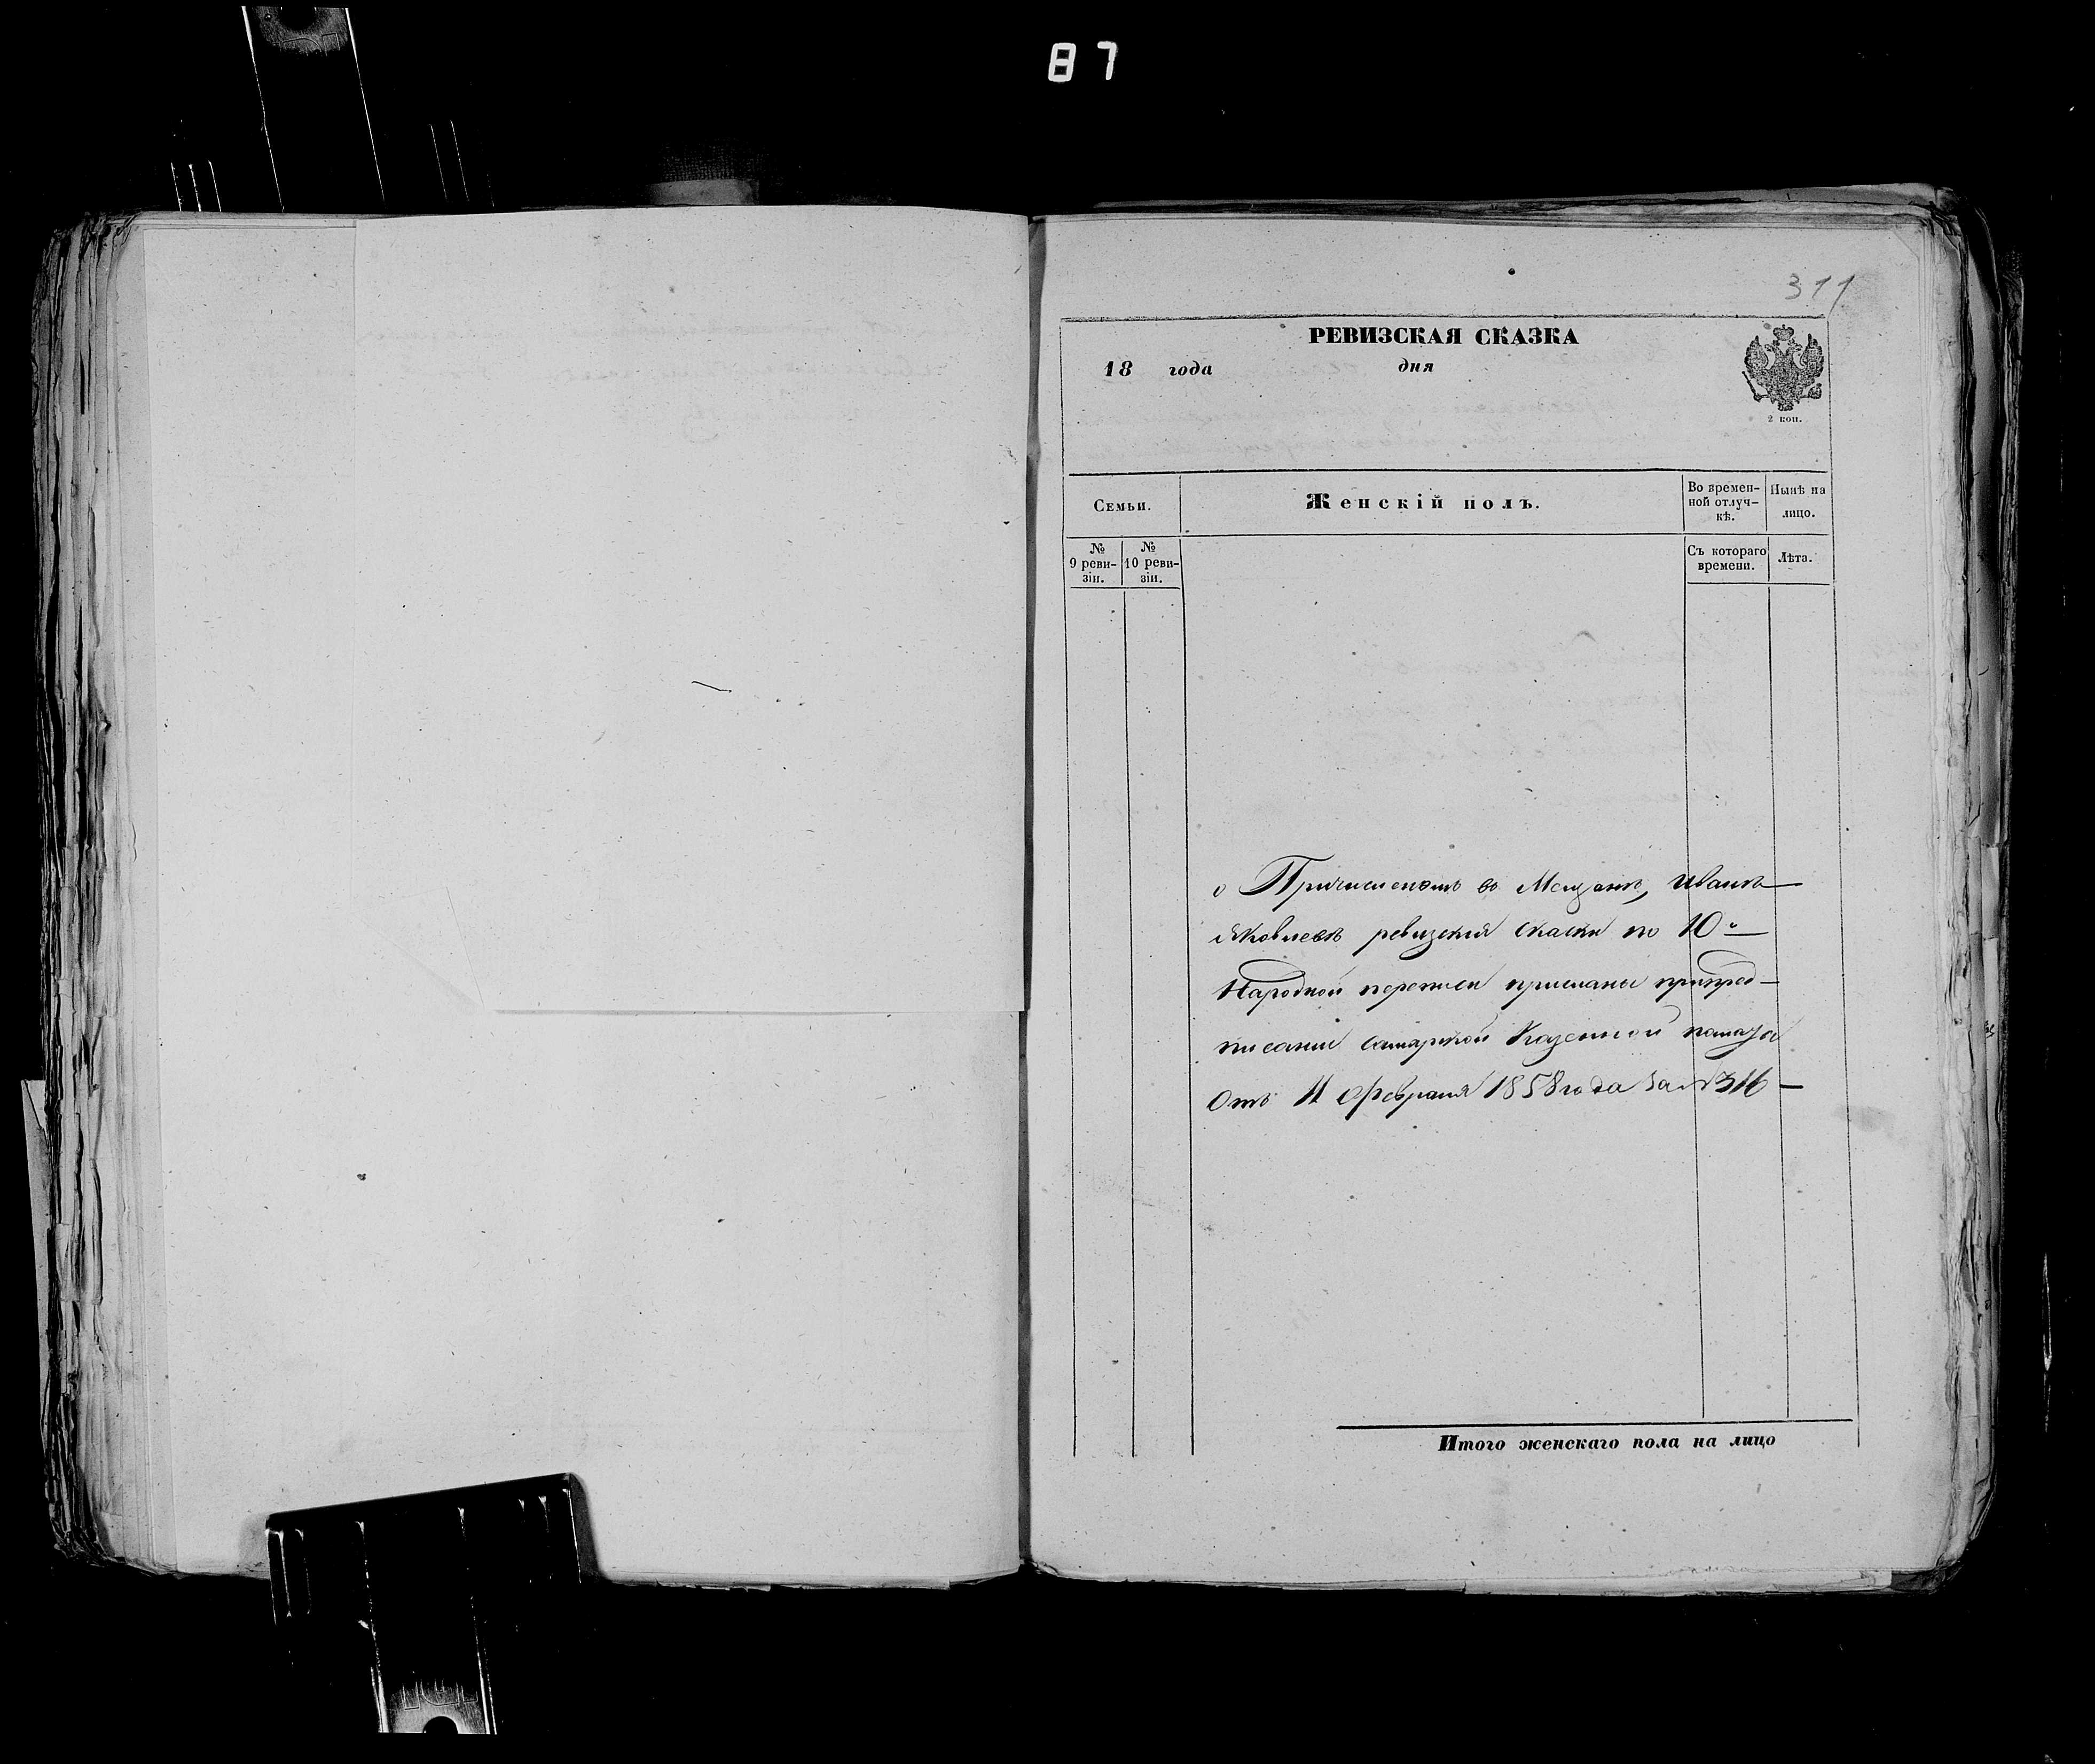 87
311
РЕВИЗСКАЯ СКАЗКА
18 года дня
2 коп.
Семьи.
Женскій полъ.
Во времен-
ной отлуч-
кѣ.
Нынѣ на
лицо.
№
9 реви-
зіи.
№
10 реви-
зіи.
Съ котораго
времени.
Лѣта.
о Причисленомъ въ Мещанъ, Иванъ
Яковлевъ ревизския скаски по 10й
Народной переписи присланы припред-
писании самарской Казенной палаты
Отъ 11 Февраля 1858 года за №
Итого женскаго пола на лицо